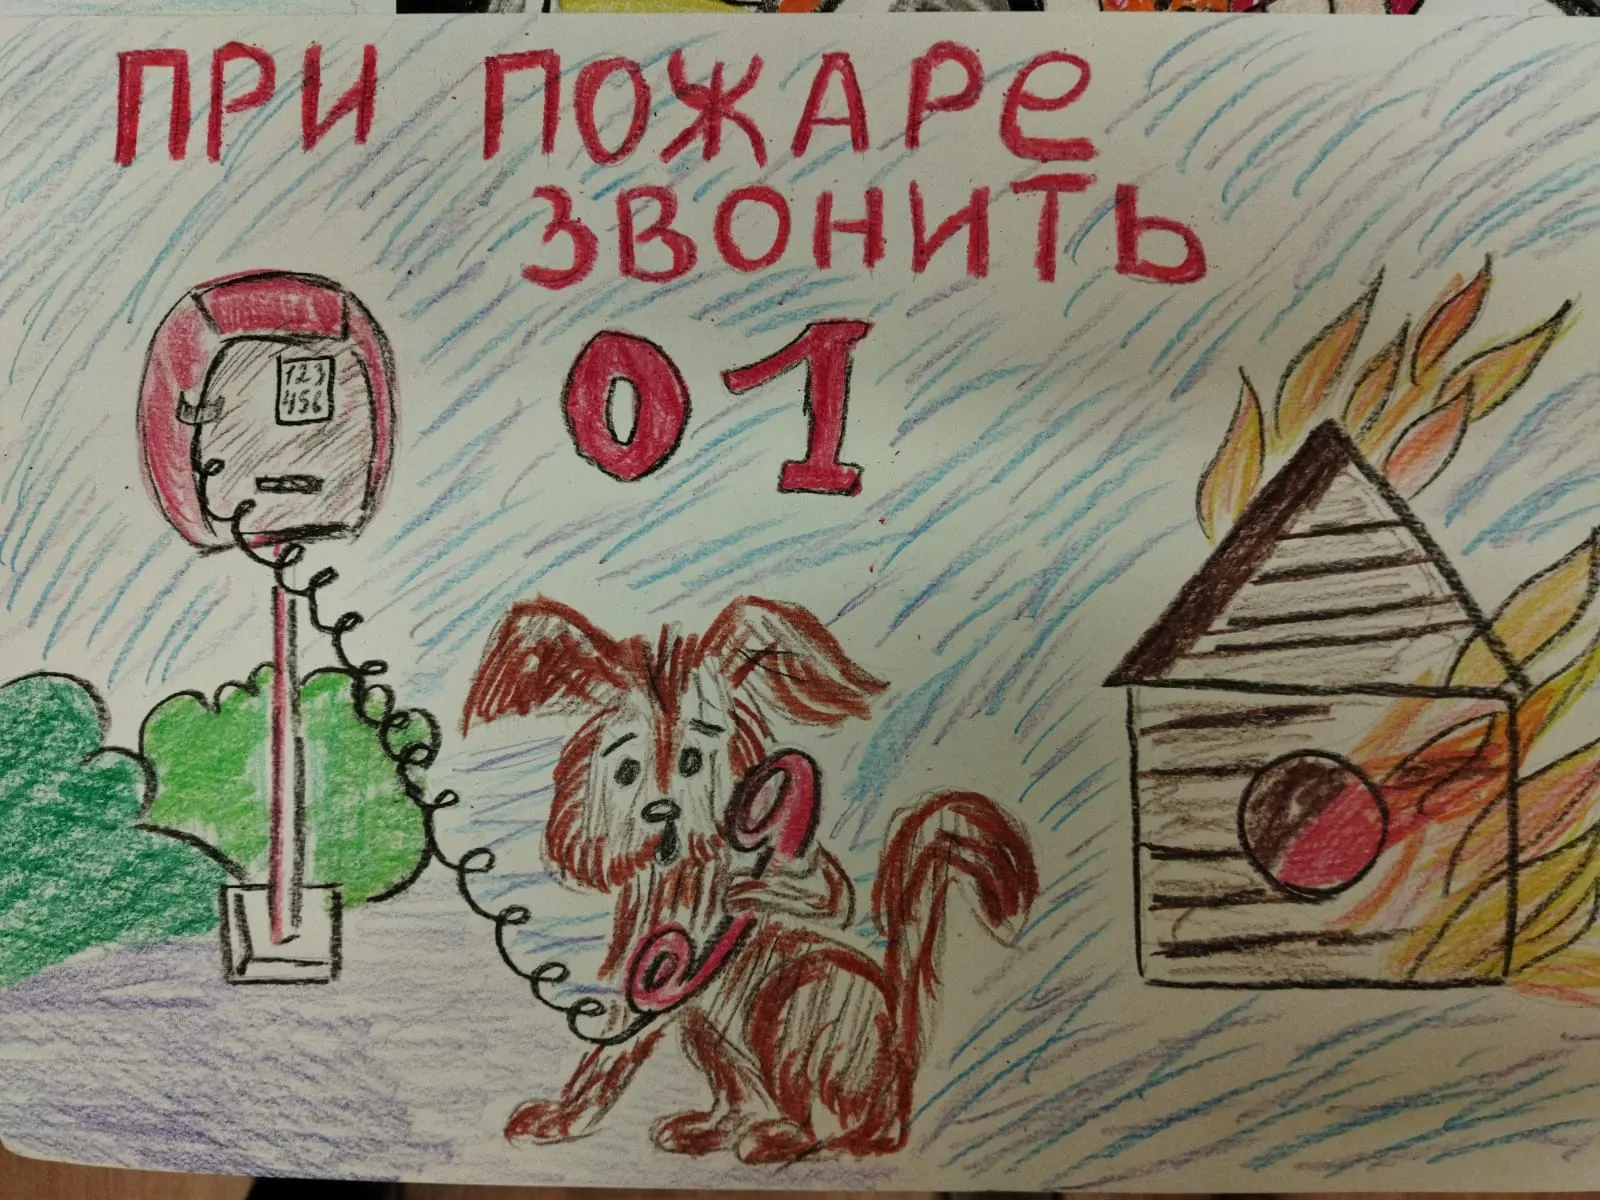 ПРИ ПОЖАРЕ
ЗВОНИТЬ
01
123
456